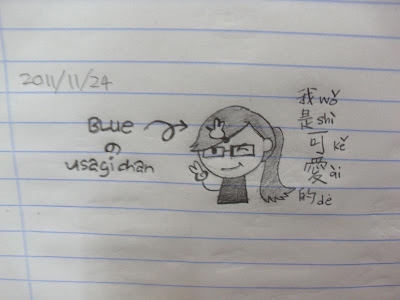 2011/11/24
Blue
の
usagichan
我 wǒ
是 shì
可 kě
愛 ài
的 dè